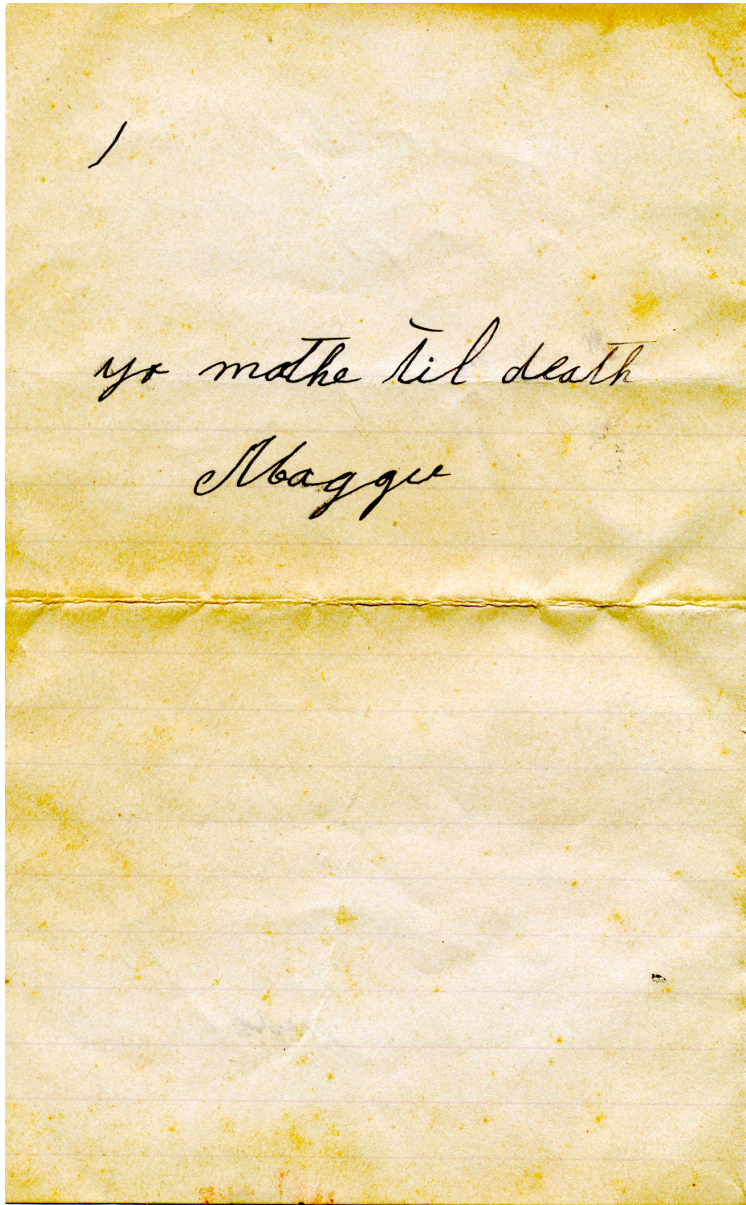 yo mothe til death
Maggie